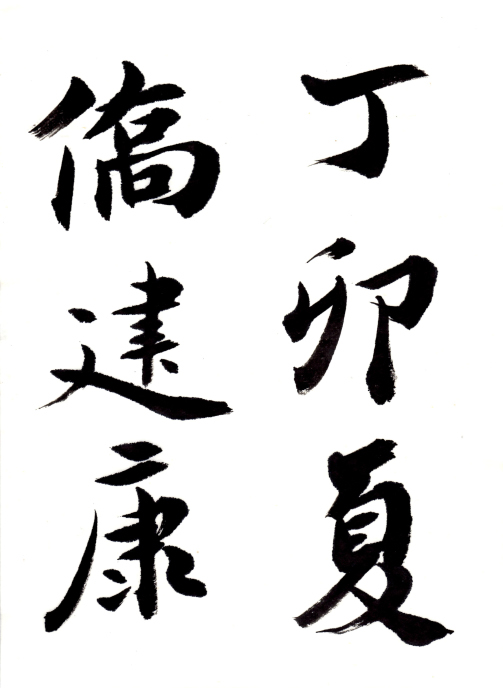 丁卯夏
僑建康